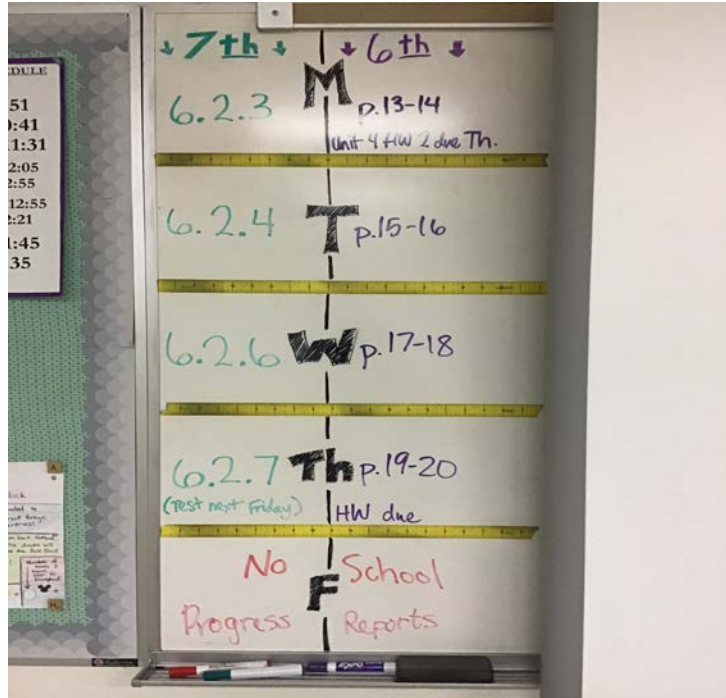 EDULE
51
0:41
11:31
2:05
2:55
12:55
2:21
1:45
35
↓ 7th ↓ ↓ 6th ↓
6.2.3 M p.13-14
Unit 4 HW 2 due Th.
6.2.4 T p.15-16
6.2.6 W p.17-18
6.2.7 Th p.19-20
(Test next Friday) HW due
No F School
Progress Reports
EXPO